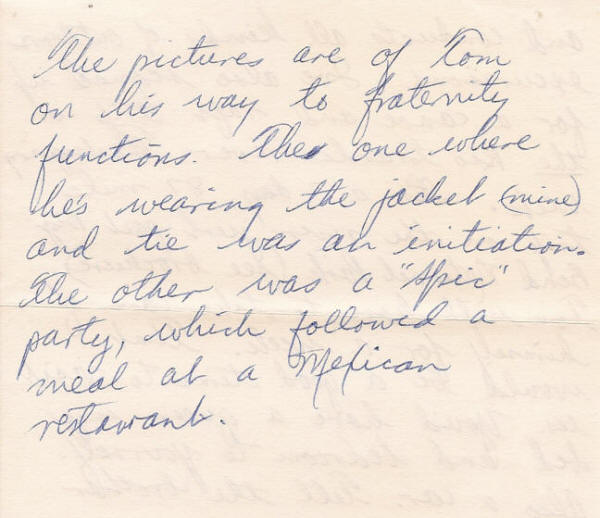 The pictures are of Tom
on his way to fraternity
functions. The one where
he's wearing the jacket (mine)
and tie was an initiation.
The other was a "spic"
party, which followed a
meal at a Mexican
restaurant.